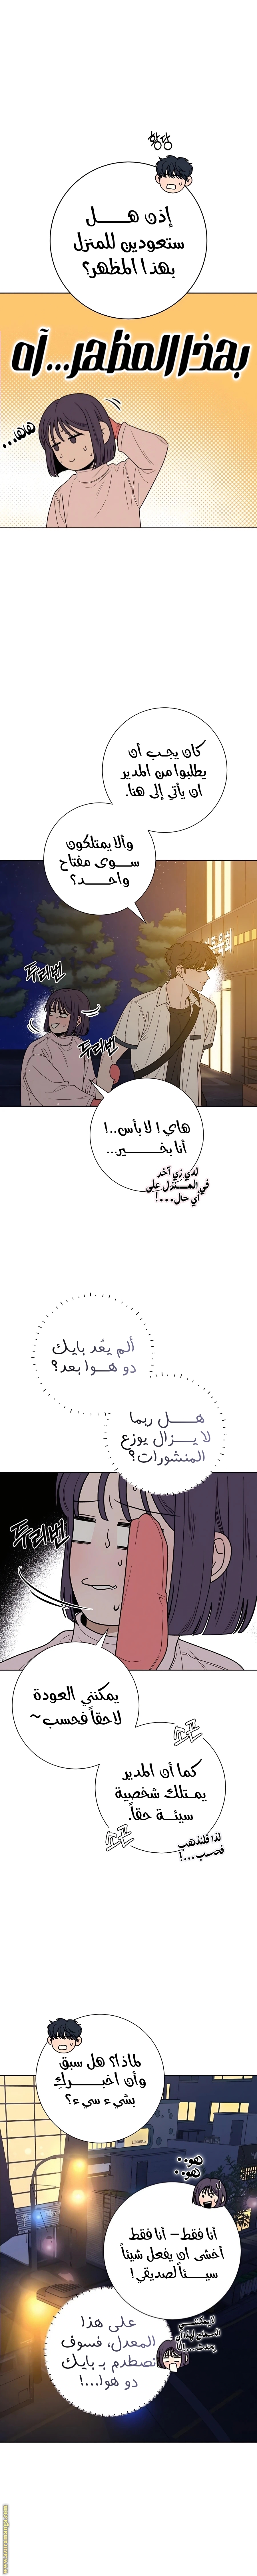 황당
إذن هل
ستعودين للمنزل
بهذا المظهر؟
بهذا المظهر...آه
هاها...
كان يجب أن
يطلبوا من المدير
ان يأتي إلى هنا.
وألا يمتلكون
سوى مفتاح
واحد؟
두리번
두리번
هاي! لا بأس..!
أنا بخير...
لدي زي آخر
في المنزل على
أي حال...!
ألم يعُد بايك
دو هوا بعد؟
هل ربما
لا يزال يوزع
المنشورات؟
두리번
يمكنني العودة
لاحقاً فحسب~
소곤
كما أن المدير
يمتلك شخصية
سيئة حقاً.
소곤
لذا فلنذهب
فحسب...!
لماذا؟ هل سبق
وأن اخبركِ
بشيء سيء؟
هوو..
هوو..
أنا فقط- أنا فقط
أخشى ان يفعل شيئاً
سيئاً لصديقي!
لا يمكنني
السماح لهذا أن
يحدث...!!
على هذا
المعدل، فسوف
نصطدم بـ بايك
دو هوا...!